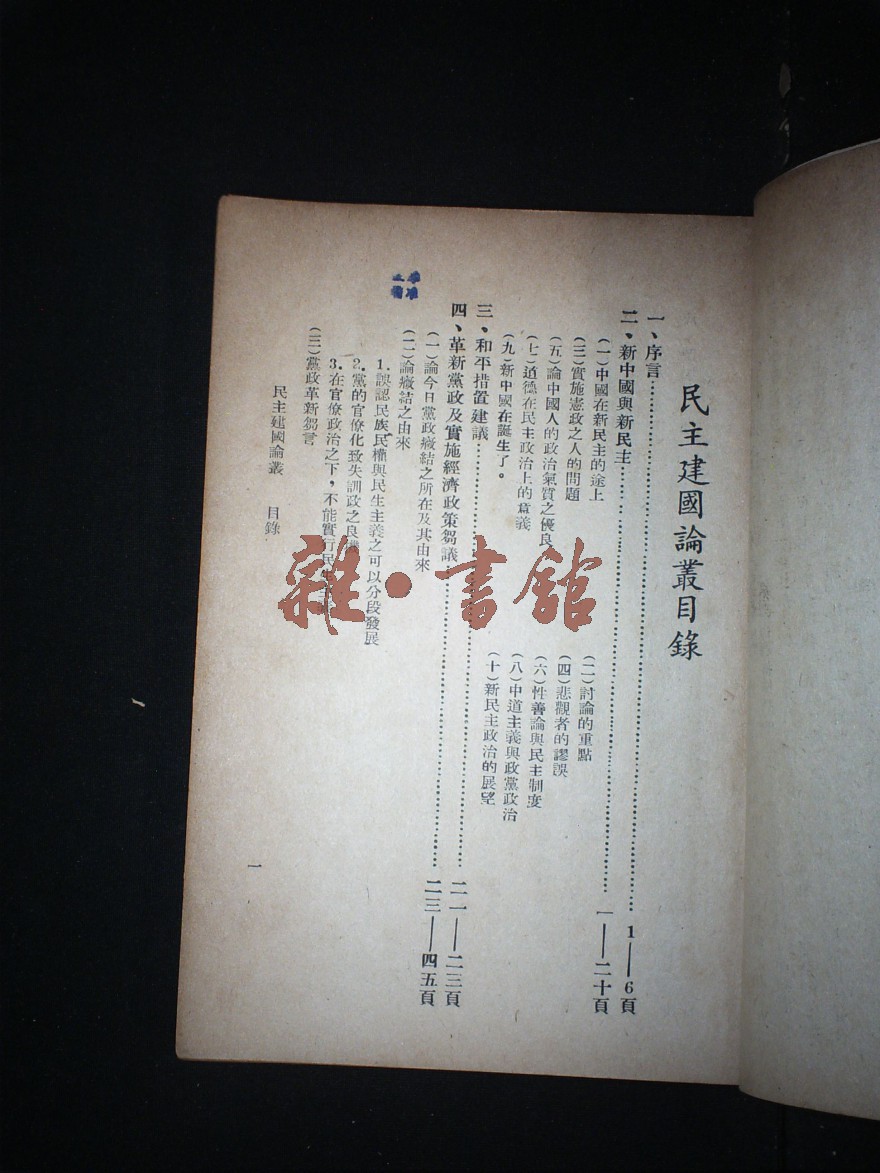 民主建國論叢目錄
一、序言……1——6頁
二、新中國與新民主……一——二十頁
(一)中國在新民主的途上
(二)討論的重點
(三)實施憲政之人的問題
(四)悲觀者的謬誤
(五)論中國人的政治氣質之優良
(六)性善論與民主制度
(七)道德在民主政治上的意義
(八)中道主義與政黨政治
(九)新中國在誕生了。
(十)新民主政治的展望
三、和平措置建議……二一——二三頁
四、革新黨政及實施經濟政策芻議……二三——四五頁
(一)論今日黨政癥結之所在及其由來
(二)論癥結之由來
1.誤認民族民權與民生主義之可以分段發展
2.黨的官僚化致失訓政之良
3.在官僚政治之下，不能實行民生
(三)黨政革新芻言
民主建國論叢 目錄
一
雜·書館